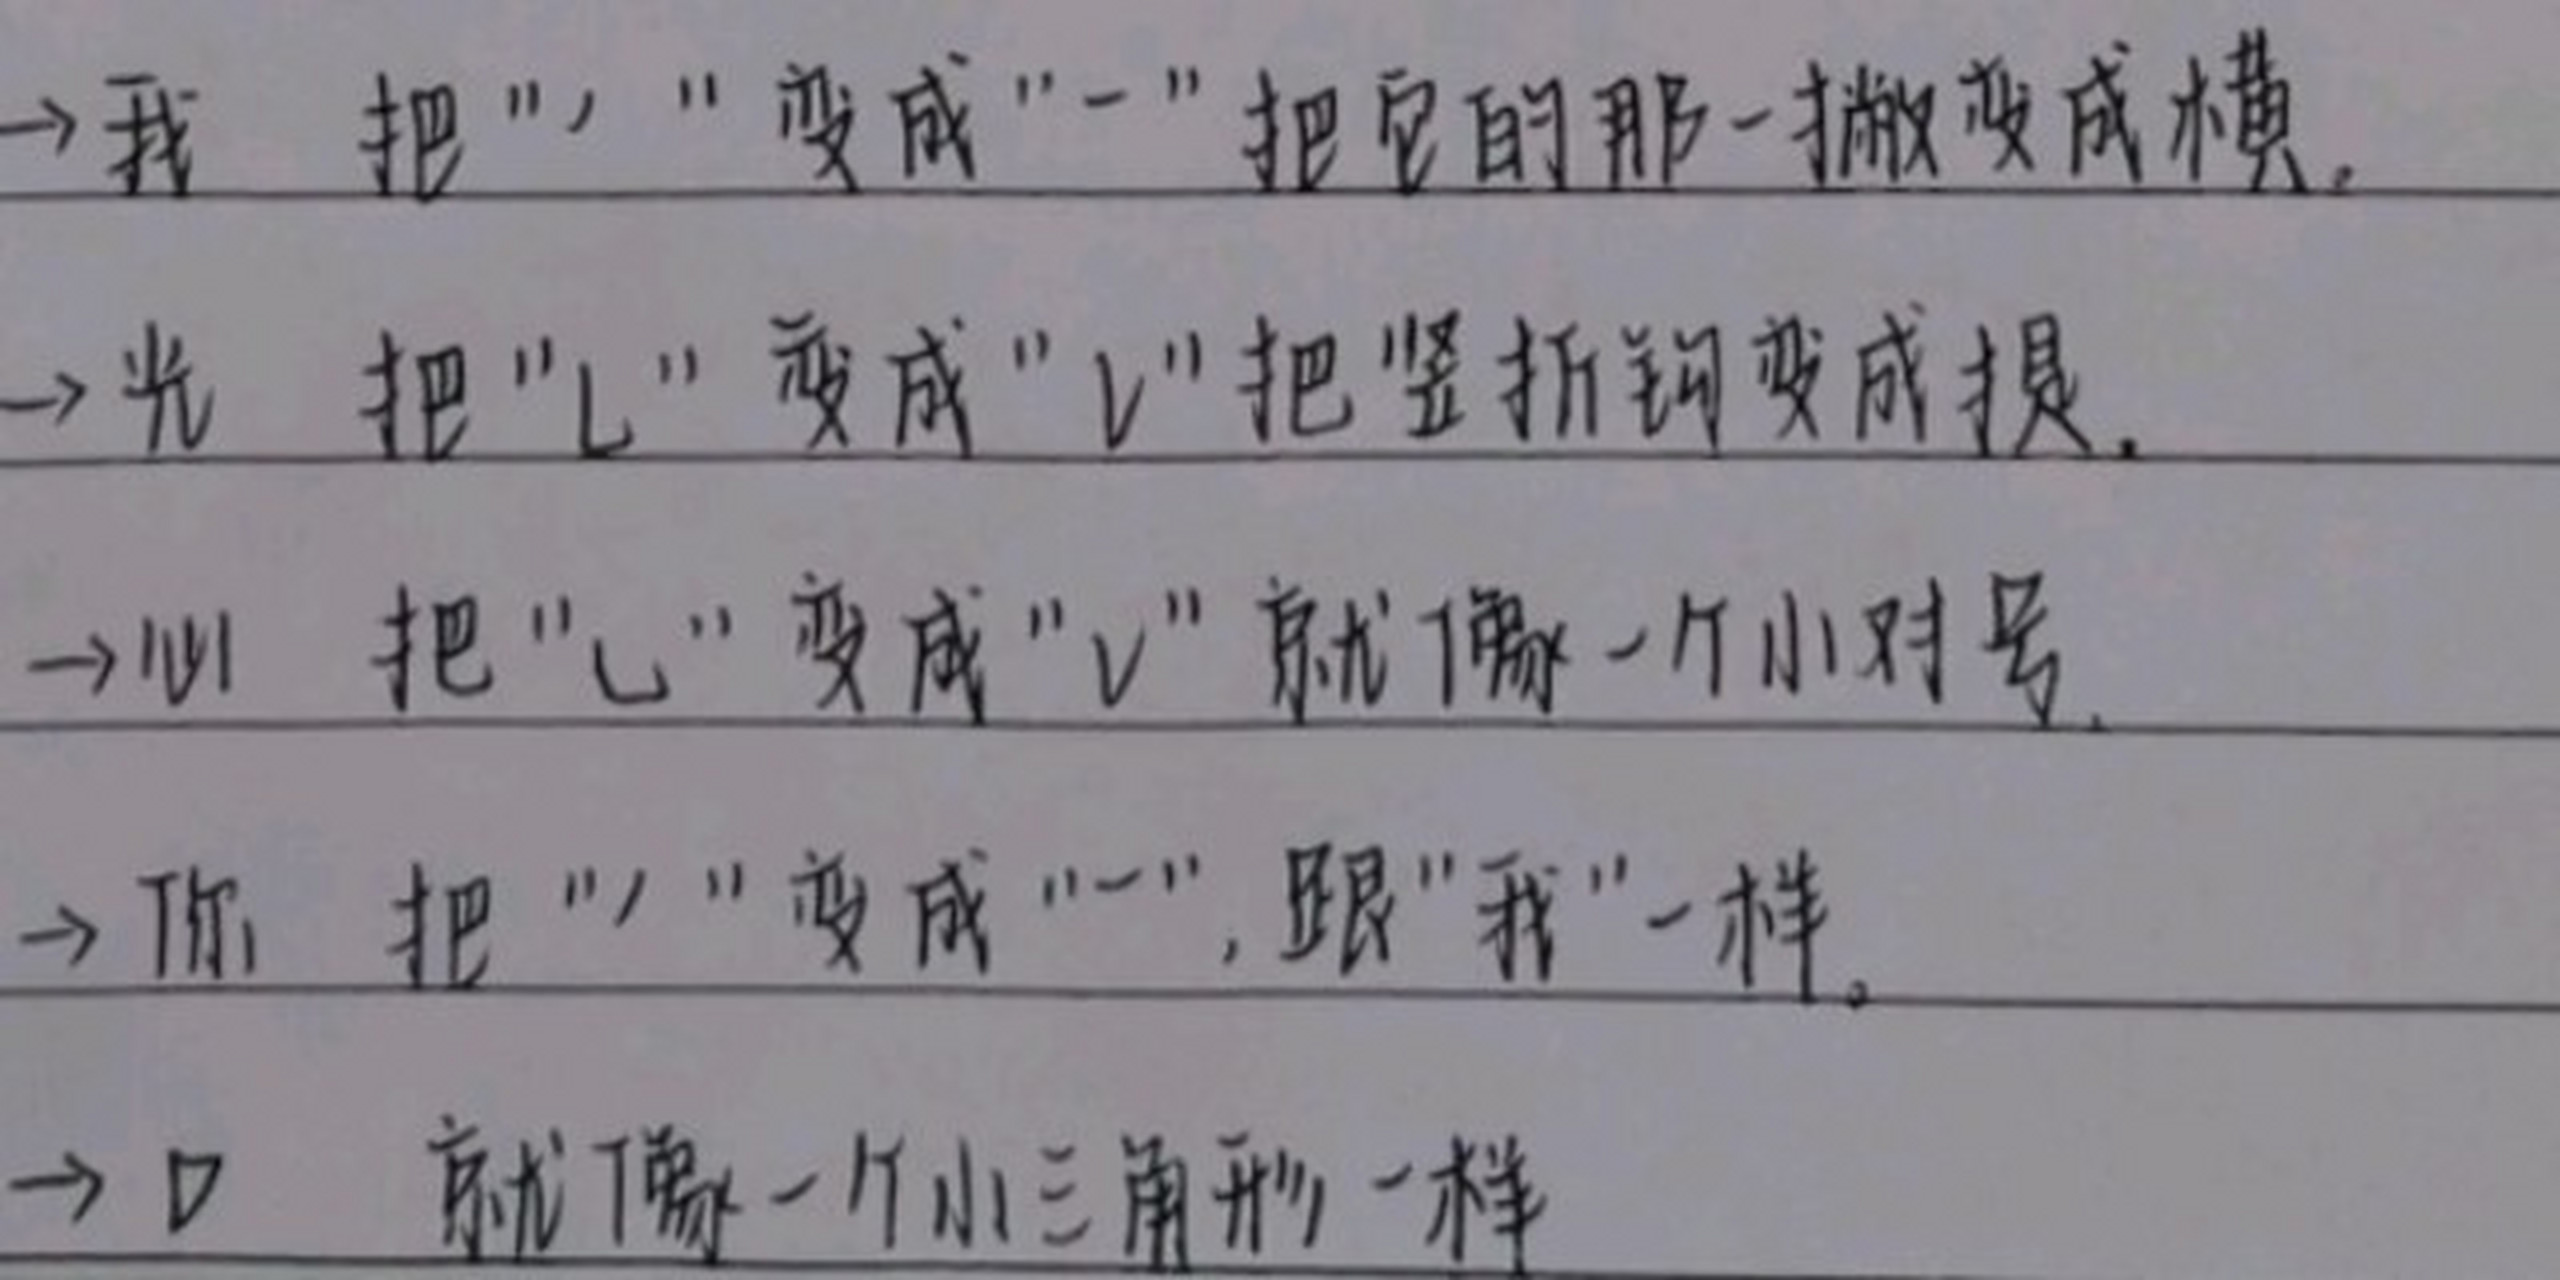 →我 把"丿"变成"一"把它的那一撇变成横。
→光 把"乚"变成"レ"把竖折钩变成提.
→心 把"乚"变成"レ"就像一个小对号.
→你 把"丿"变成"一",跟"我"一样。
→口 就像一个小三角形一样